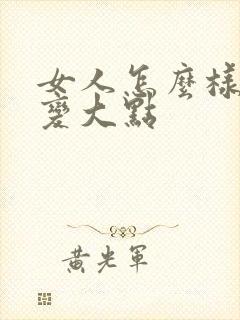 女人怎麼樣
變大點
黃光軍